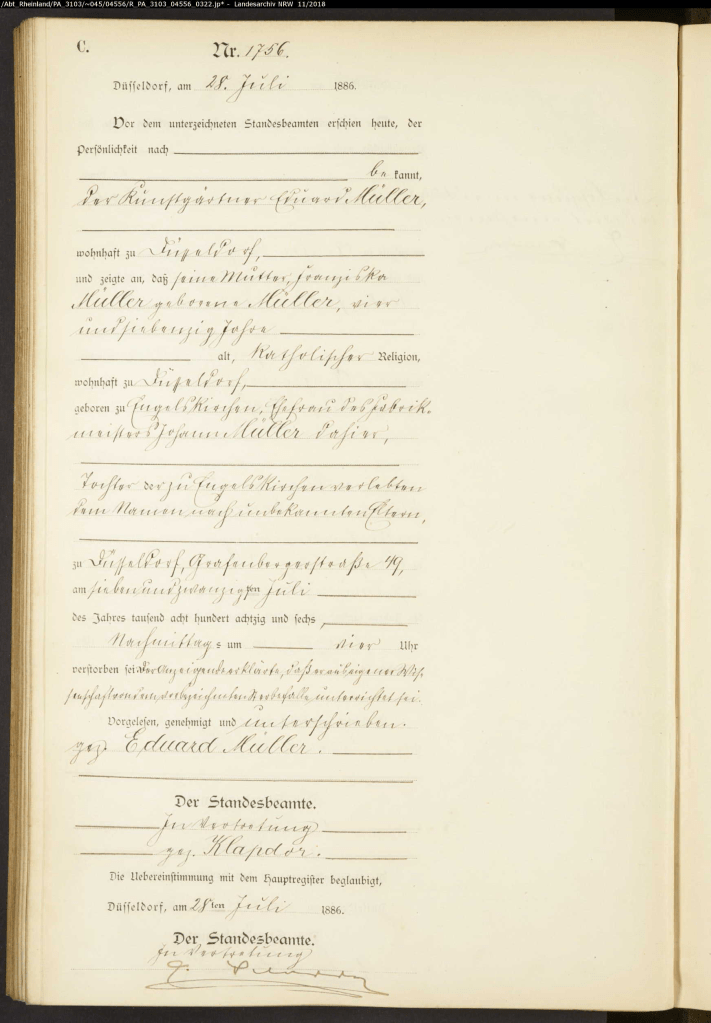 /Abt_Rheinland/PA_3103/~045/04556/R_PA_3103_04556_0322.jp* - Landesarchiv NRW 11/2018
C.
Nr. 1756.
Düsseldorf, am 28. Juli 1886.
Vor dem unterzeichneten Standesbeamten erschien heute, der
Persönlichkeit nach
be kannt,
der Kunstgärtner Eduard Müller,
wohnhaft zu Düsseldorf,
und zeigte an, daß seine Mutter, Franziska
Müller geborene Müller, vier
und siebenzig Jahre
alt, katholischer Religion,
wohnhaft zu Düsseldorf,
geboren zu Engelskirchen, Ehefrau des Fabrik-
meisters Johann Müller dahier,
Tochter der zu Engelskirchen verlebten
dem Namen nach unbekannten Eltern,
zu Düsseldorf, Grafenbergerstraße 49,
am sieben und zwanzigsten Juli
des Jahres tausend acht hundert achtzig und sechs,
Nachmittags um vier Uhr
verstorben sei. Der Anzeigende erklärte, daß er aus eigener Wis-
senschaft von dem vorbezeichneten Sterbefalle unterrichtet sei.
Vorgelesen, genehmigt und unterschrieben.
gez. Eduard Müller.
Der Standesbeamte.
In Vertretung
gez. Klapdor.
Die Uebereinstimmung mit dem Hauptregister beglaubigt,
Düsseldorf, am 28ten Juli 1886.
Der Standesbeamte.
In Vertretung